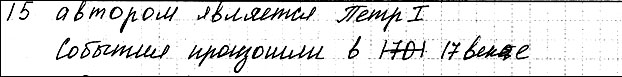 15 автором является Петр I
События произошли в 1701 17 веке